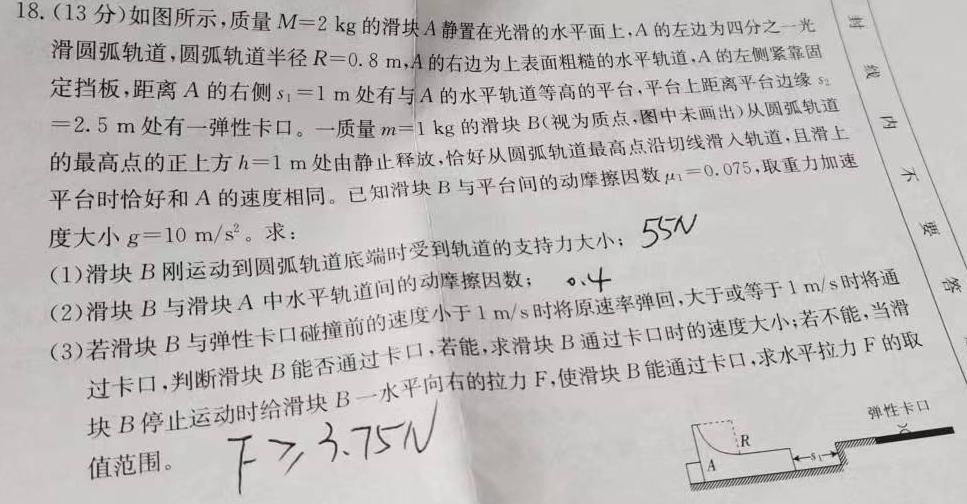 18.(13分)如图所示,质量M=2 kg的滑块A静置在光滑的水平面上,A的左边为四分之一光
滑圆弧轨道,圆弧轨道半径R=0.8 m,A的右边为上表面粗糙的水平轨道,A的左侧紧靠固
定挡板,距离A的右侧s₁=1 m处有与A的水平轨道等高的平台,平台上距离平台边缘s₂
=2.5 m处有一弹性卡口。一质量m=1 kg的滑块B(视为质点,图中未画出)从圆弧轨道
的最高点的正上方h=1 m处由静止释放,恰好从圆弧轨道最高点沿切线滑入轨道,且滑上
平台时恰好和A的速度相同。已知滑块B与平台间的动摩擦因数μ₁=0.075,取重力加速
度大小g=10 m/s²。求:
(1)滑块B刚运动到圆弧轨道底端时受到轨道的支持力大小; 55N
(2)滑块B与滑块A中水平轨道间的动摩擦因数; 0.4
(3)若滑块B与弹性卡口碰撞前的速度小于1 m/s时将原速率弹回,大于或等于1 m/s时将通
过卡口,判断滑块B能否通过卡口,若能,求滑块B通过卡口时的速度大小;若不能,当滑
块B停止运动时给滑块B一水平向右的拉力F,使滑块B能通过卡口,求水平拉力F的取
值范围。 F≥3.75N
弹性卡口
R
A
s₁
封
线
内
不
要
答